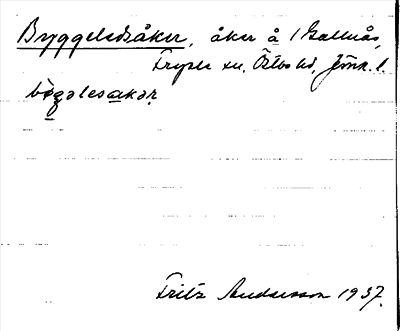 Bryggelsåker, åker å 1 Gallnås,
Fryele sn, Östbo hd, Jönk. l.
bøgəlesakər
Fritz Andersson 1937.